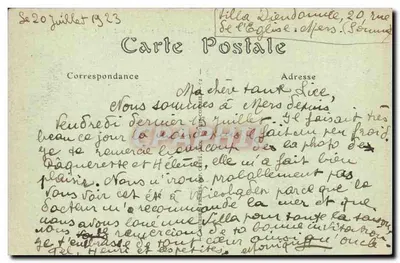 le 20 Juillet 1923
Villa Dieudonnée, 20, rue
de l'Eglise. Mers. (Somme)
Carte Postale
Correspondance
Adresse
Ma chère tante Lice,
Nous sommes à Mers depuis
Vendredi dernier Juillet. Il faisait très
beau ce jour fait un peu froid
Je te remercie beaucoup de la photo de
Pâquerette et Hélène, elle m'a fait bien
plaisir. Nous n'irons probablement pas
vous voir cet été à parce que le
docteur m'a recommandé la mer et que
nous avons loué une villa pour toute la saison
nous te remercions de ta bonne invitation
Je t'embrasse de tout cœur ainsi qu'oncle
et les petites.